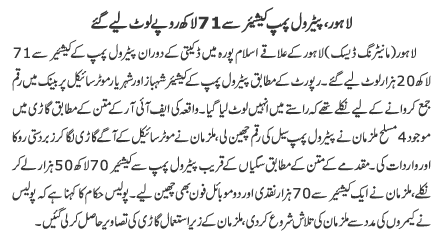 لاہور، پیٹرول پمپ کیشیئر سے 71 لاکھ روپے لوٹ لیے گئے
لاہور (مانیٹرنگ ڈیسک) لاہور کے علاقے اسلام پورہ میں ڈکیتی کے دوران پیٹرول پمپ کے کیشیئر سے 71
لاکھ 20 ہزار لوٹ لیے گئے۔ رپورٹ کے مطابق پیٹرول پمپ کے کیشیئر شہباز اور شہریار موٹر سائیکل پر بینک میں رقم
جمع کروانے کے لیے نکلے تھے کہ راستے میں انہیں لوٹ لیا گیا۔ واقعہ کی ایف آئی آر کے متن کے مطابق گاڑی میں
موجود 4 مسلح ملزمان نے پیٹرول پمپ سیل کی رقم چھین لی، ملزمان نے موٹر سائیکل کے آگے گاڑی لگا کر زبردستی روکا
اور واردات کی۔ مقدمے کے متن کے مطابق سگیاں کے قریب پیٹرول پمپ سے کیشیئر 70 لاکھ 50 ہزار لے کر
نکلے، ملزمان نے ایک کیشیئر سے 70 ہزار نقدی اور دو موبائل فون بھی چھین لیے۔ پولیس حکام کا کہنا ہے کہ پولیس
نے کیمروں کی مدد سے ملزمان کی تلاش شروع کر دی، ملزمان کے زیر استعمال گاڑی کی تصاویر حاصل کر لی گئیں۔